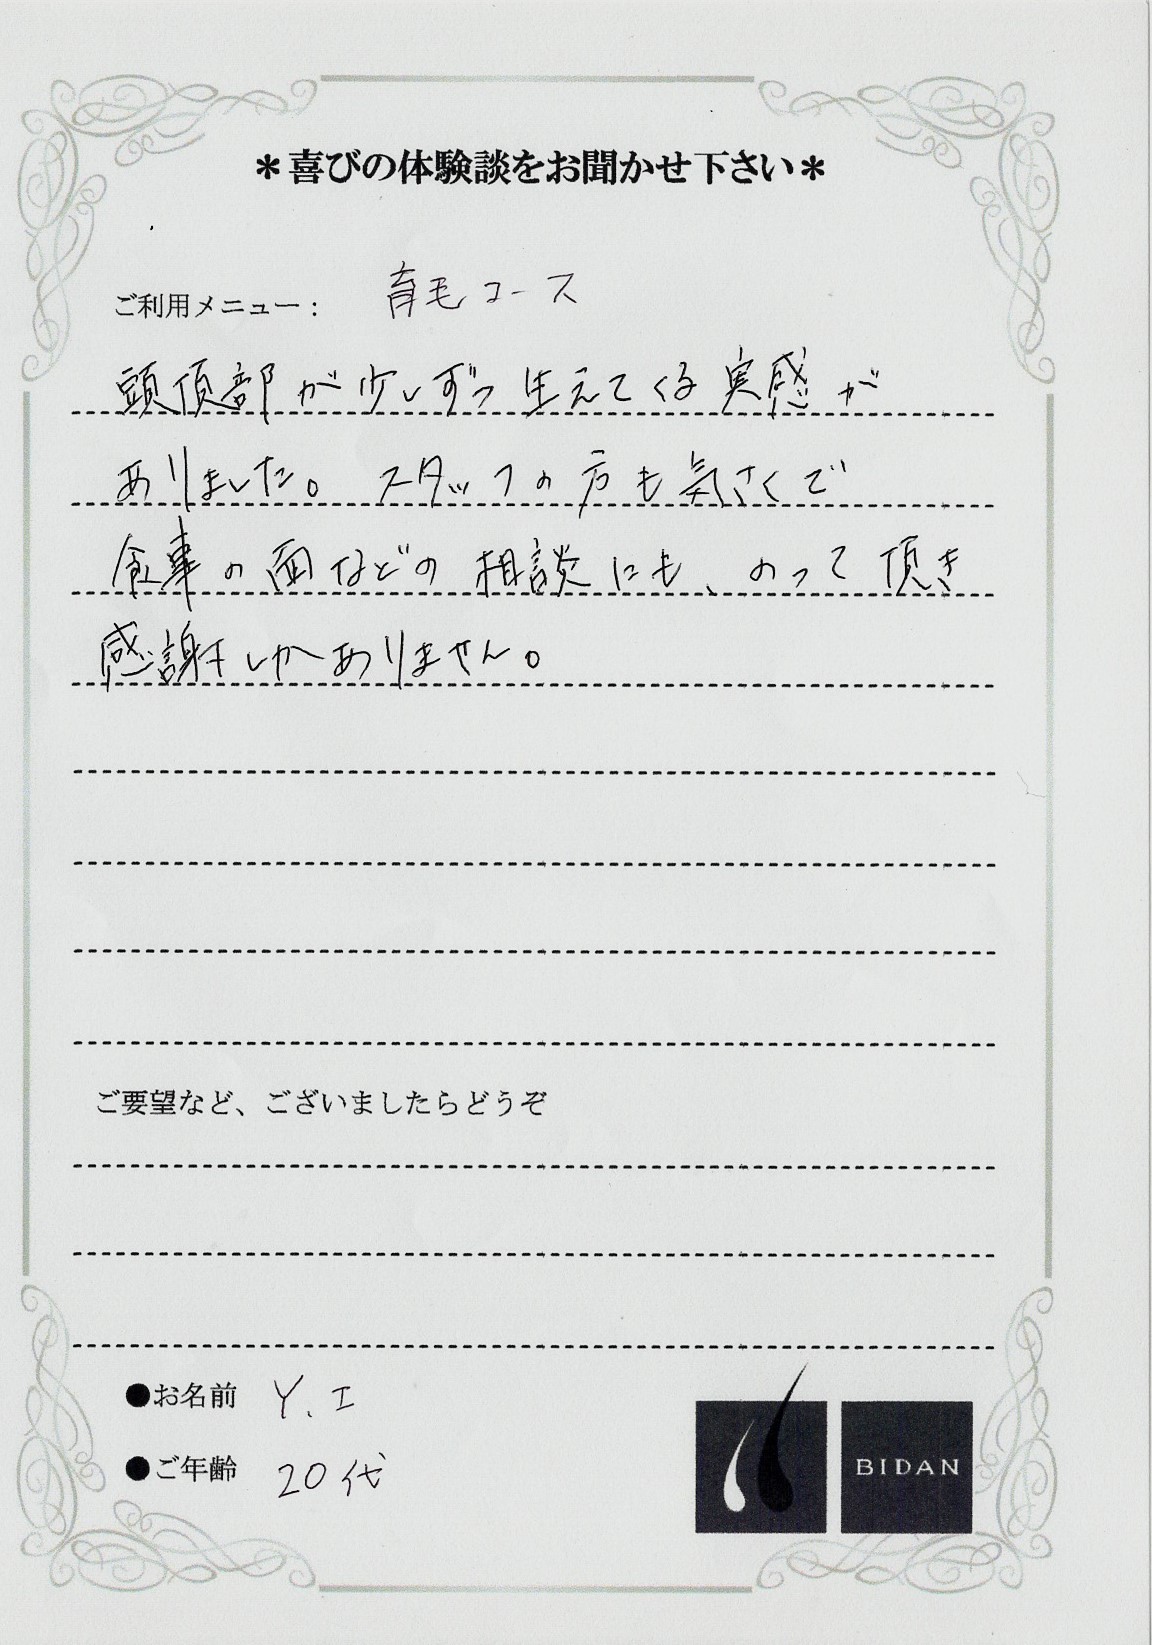 ＊喜びの体験談をお聞かせ下さい＊
ご利用メニュー： 育毛コース
頭頂部が少しずつ生えてくる実感が
ありました。スタッフの方も気さくで
食事の面などの相談にも、のって頂き
感謝しかありません。
ご要望など、ございましたらどうぞ
●お名前 Y.I
●ご年齢 20代
BIDAN